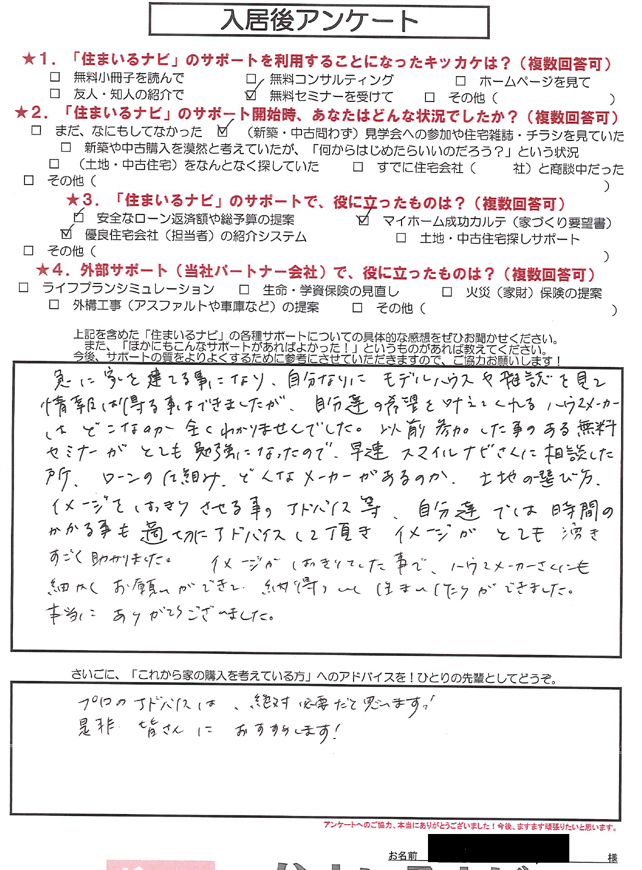 入居後アンケート
★1．「住まいるナビ」のサポートを利用することになったキッカケは？（複数回答可）
□ 無料小冊子を読んで □ 無料コンサルティング □ ホームページを見て
□ 友人・知人の紹介で ☑ 無料セミナーを受けて □ その他（ ）
★2．「住まいるナビ」のサポート開始時、あなたはどんな状況でしたか？（複数回答可）
□ まだ、なにもしてなかった ☑ （新築・中古問わず）見学会への参加や住宅雑誌・チラシを見ていた
□ 新築や中古購入を漠然と考えていたが、「何からはじめたらいいのだろう？」という状況
□ （土地・中古住宅）をなんとなく探していた □ すでに住宅会社（ 社）と商談中だった
□ その他（ ）
★3．「住まいるナビ」のサポートで、役に立ったものは？（複数回答可）
☑ 安全なローン返済額や総予算の提案 ☑ マイホーム成功カルテ（家づくり要望書）
☑ 優良住宅会社（担当者）の紹介システム □ 土地・中古住宅探しサポート
□ その他（ ）
★4．外部サポート（当社パートナー会社）で、役に立ったものは？（複数回答可）
□ ライフプランシミュレーション □ 生命・学資保険の見直し □ 火災（家財）保険の提案
□ 外構工事（アスファルトや車庫など）の提案 □ その他（ ）
上記を含めた「住まいるナビ」の各種サポートについての具体的な感想をぜひお聞かせください。
また、「ほかにもこんなサポートがあればよかった！」というものがあれば教えてください。
今後、サポートの質をよりよくするために参考にさせていただきますので、ご協力お願いします！
急に家を建てる事になり、自分なりにモデルハウスや雑誌を見て
情報は得る事はできましたが、自分達の希望を叶えてくれるハウスメーカー
はどこなのか全くわかりませんでした。以前参加した事のある無料
セミナーがとても勉強になったので、早速スマイルナビさんに相談した
所、ローンの仕組み、どんなメーカーがあるのか、土地の選び方、
イメージをはっきりさせる事のアドバイス等、自分達では時間の
かかる事も適切にアドバイスして頂きイメージがとても湧き
すごく助かりました。 イメージがはっきりしてた事で、ハウスメーカーさんにも
細かくお願いができて、納得 住まい ができました。
本当にありがとうございました。
さいごに、「これから家の購入を考えている方」へのアドバイスを！ひとりの先輩としてどうぞ。
プロのアドバイスは、絶対必要だと思います！
是非 皆さんに おすすめします！
アンケートへのご協力、本当にありがとうございました！今後、ますます頑張りたいと思います。
お名前 様